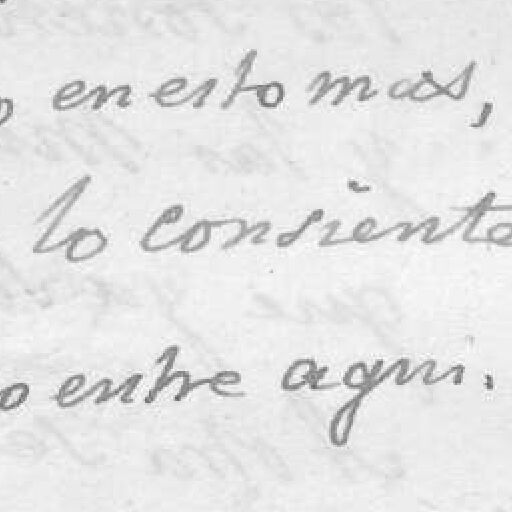 o en esto mas,
lo consiente
o entre aqui.